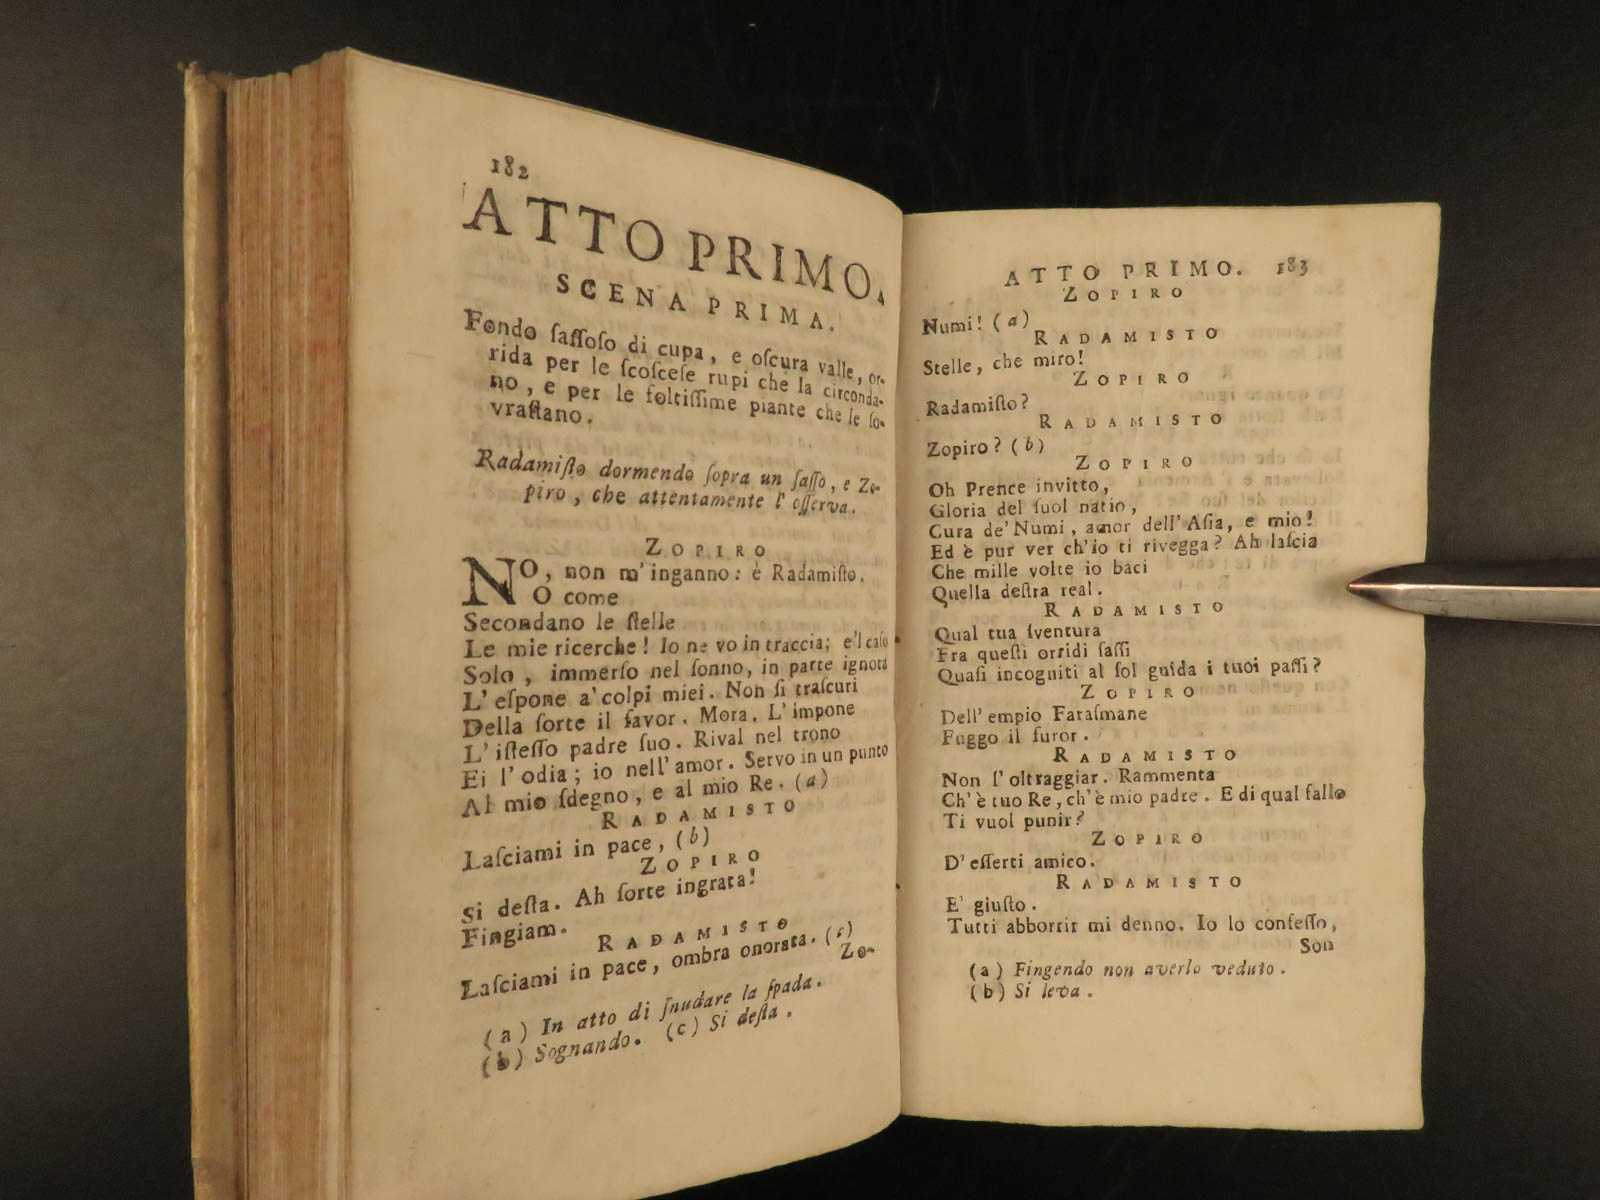 182
ATTO PRIMO.
SCENA PRIMA.
Fondo ſaſſoſo di cupa, e oſcura valle, or-
rida per le ſcoſceſe rupi che la circonda-
no, e per le foltiſſime piante che le ſo-
vraſtano.
Radamiſto dormendo ſopra un ſaſſo, e Zo-
piro, che attentamente l'oſſerva.
ZOPIRO
NO, non m'inganno: è Radamiſto.
O come
Secondano le ſtelle
Le mie ricerche! Io ne vo in traccia; e'l caſo
Solo, immerſo nel ſonno, in parte ignota
L'eſpone a'colpi miei. Non ſi traſcuri
Della ſorte il favor. Mora. L'impone
L'iſteſſo padre ſuo. Rival nel trono
Ei l'odia; io nell'amor. Servo in un punto
Al mio ſdegno, e al mio Re. (a)
RADAMISTO
Laſciami in pace, (b)
ZOPIRO
Si deſta. Ah ſorte ingrata!
Fingiam.
RADAMISTO
Laſciami in pace, ombra onorata. (c)
Zo-
(a) In atto di ſnudare la ſpada.
(b) Sognando. (c) Si deſta.
ATTO PRIMO. 183
ZOPIRO
Numi! (a)
RADAMISTO
Stelle, che miro!
ZOPIRO
Radamiſto?
RADAMISTO
Zopiro? (b)
ZOPIRO
Oh Prence invitto,
Gloria del ſuol natio,
Cura de'Numi, amor dell'Aſia, e mio!
Ed è pur ver ch'io ti rivegga? Ah laſcia
Che mille volte io baci
Quella deſtra real.
RADAMISTO
Qual tua ſventura
Fra queſti orridi ſaſſi
Quaſi incogniti al ſol guida i tuoi paſſi?
ZOPIRO
Dell'empio Faraſmane
Fuggo il furor.
RADAMISTO
Non l'oltraggiar. Rammenta
Ch'è tuo Re, ch'è mio padre. E di qual fallo
Ti vuol punir?
ZOPIRO
D'eſſerti amico.
RADAMISTO
E' giuſto.
Tutti abborrir mi denno. Io lo confeſſo,
Son
(a) Fingendo non averlo veduto.
(b) Si leva.